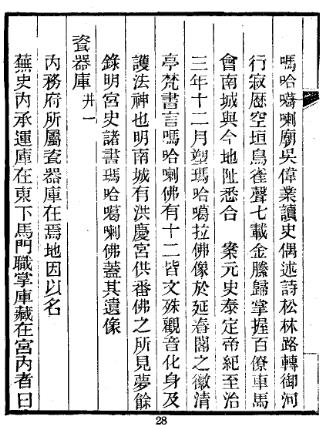 嗎哈噶喇廟吳偉業讀史偶述詩松林路轉御河
行寂歷空垣鳥雀聲七載金縢歸掌握百僚車馬
會南城與今地址悉合　案元史泰定帝紀至治
三年十二月塑瑪哈噶拉佛像於延春閣之徽清
亭梵書言嗎哈喇佛有十二皆文殊觀音化身及
護法神也明南城有洪慶宮供番佛之所見夢餘
錄明宮史諸書瑪哈噶喇佛蓋其遺像
瓷器庫　井一
內務府所屬瓷器庫在焉地因以名
蕪史內承運庫在東下馬門職掌庫藏在宮內者曰
28